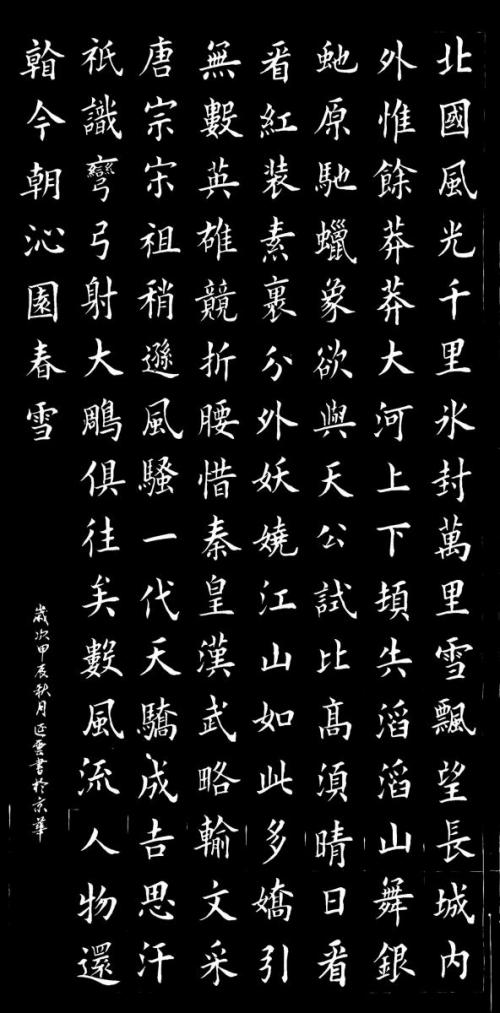 北國風光千里氷封萬里雪飄望長城内
外惟餘莽莽大河上下頓失滔滔山舞銀
虵原馳蠟象欲與天公試比髙須晴日看
看紅装素裹分外妖嬈江山如此多嬌引
無數英雄競折腰惜秦皇漢武略輸文采
唐宗宋祖稍遜風騷一代天驕成吉思汗
祇識彎弓射大鵰俱往矣數風流人物還
看今朝沁園春雪
歲次甲辰秋月延雲書於京華